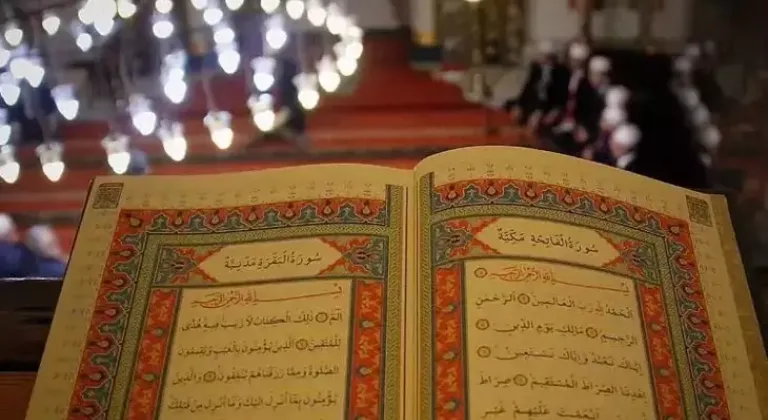 سُورَةُ الْفَاتِحَةِ مَكِّيَّةٌ
بِسْمِ اللّٰهِ الرَّحْمٰنِ الرَّحِيمِ
اَلْحَمْدُ لِلّٰهِ رَبِّ الْعَالَمِينَ ۝ اَلرَّحْمٰنِ
الرَّحِيمِ ۝ مَالِكِ يَوْمِ الدِّينِ ۝
اِيَّاكَ نَعْبُدُ وَاِيَّاكَ نَسْتَعِينُ ۝
اِهْدِنَا الصِّرَاطَ الْمُسْتَقِيمَ ۝ صِرَاطَ
اَنْعَمْتَ عَلَيْهِمْ غَيْرِ
سُورَةُ الْبَقَرَةِ مَدَنِيَّةٌ
بِسْمِ اللّٰهِ الرَّحْمٰنِ الرَّحِيمِ
الٓمٓ ۝ ذٰلِكَ الْكِتَابُ لَا رَيْبَ فِيهِ هُدًى
لِلْمُتَّقِينَ ۝ اَلَّذِينَ يُؤْمِنُونَ بِالْغَيْبِ وَيُقِيمُونَ
الصَّلٰوةَ وَمِمَّا رَزَقْنَاهُمْ يُنْفِقُونَ ۝ وَالَّذِينَ
يُؤْمِنُونَ بِمَا اُنْزِلَ اِلَيْكَ وَمَا اُنْزِلَ مِنْ قَبْلِكَ